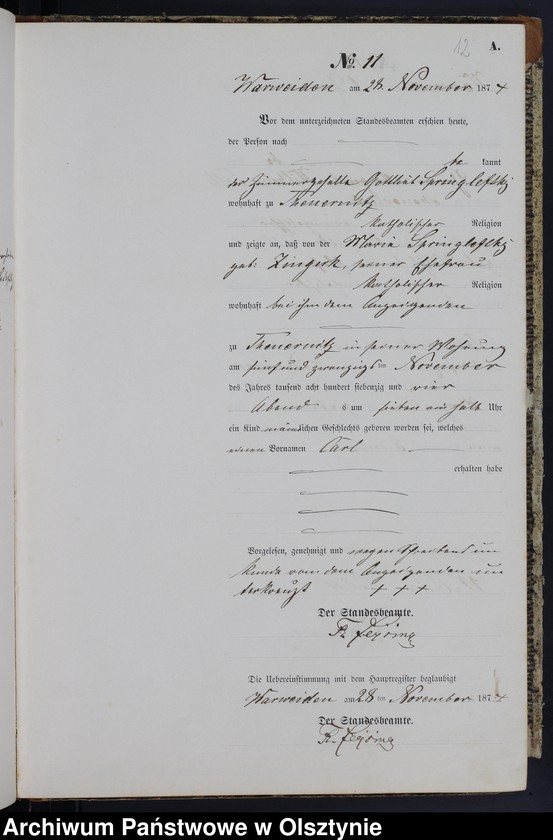 12
A.
No. 11
Warweiden am 28. November 1874
Vor dem unterzeichneten Standesbeamten erschien heute,
der Person nach
be kannt
der Zimmergeselle Gottlieb Springlefsky
wohnhaft zu Theuernitz
katholischer Religion
und zeigte an, daß von der Maria Springlefsky
geb: Zingerk, seiner Ehefrau
katholischer Religion
wohnhaft bei ihm dem Anzeigenden
zu Theuernitz in seiner Wohnung
am fünf und zwanzigsten November
des Jahres tausend acht hundert siebenzig und vier
Abends um sieben ein halb Uhr
ein Kind männlichen Geschlechts geboren worden sei, welches
einen Vornamen Carl
erhalten habe
Vorgelesen, genehmigt und wegen Schreibens un
kunde von dem Anzeigenden un
terkreuzt + + +
Der Standesbeamte.
Die Uebereinstimmung mit dem Hauptregister beglaubigt
Warweiden am 28 ten November 1874
Der Standesbeamte.
Archiwum Państwowe w Olsztynie